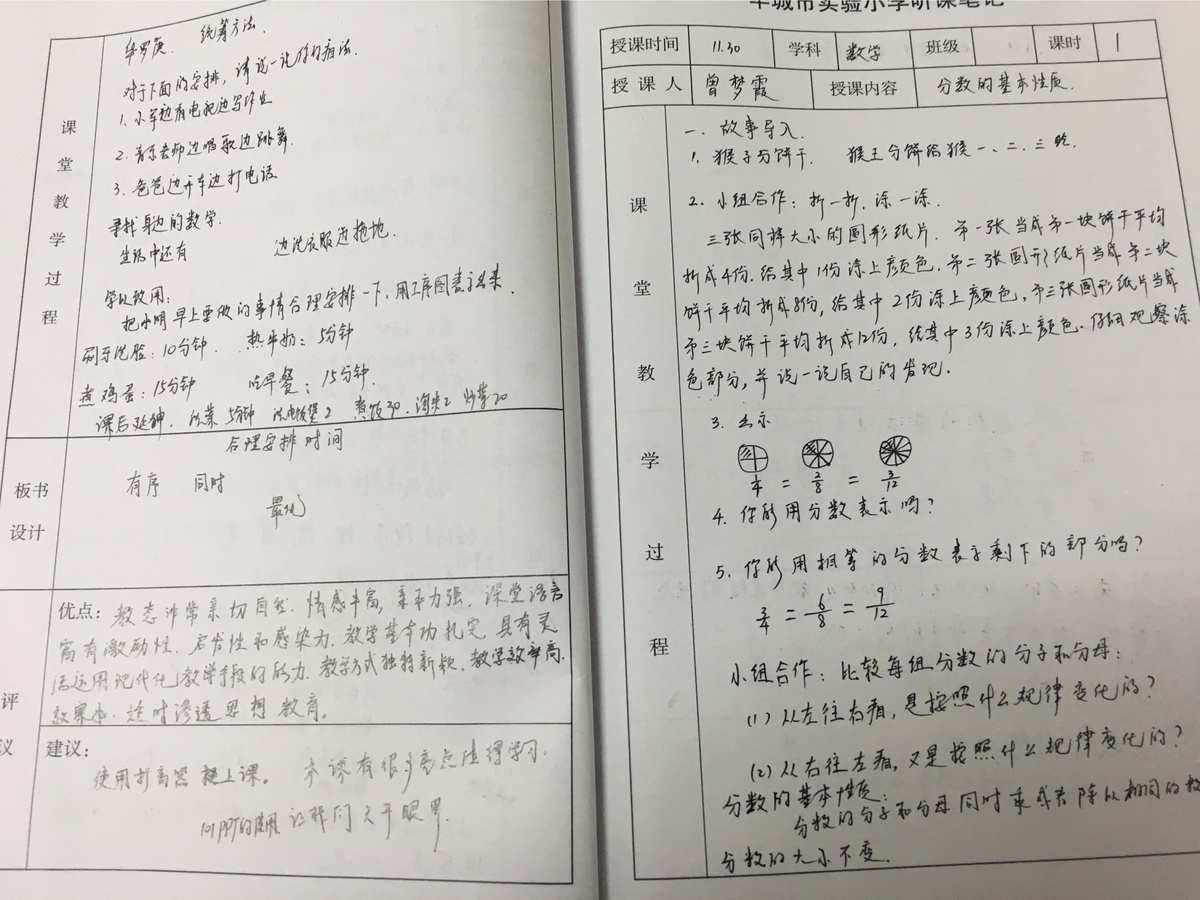 课堂教学过程
华罗庚 统筹方法.
对于下面的安排, 请说一说你的看法.
1. 小军边看电视边写作业
2. 音乐老师边唱歌边跳舞.
3. 爸爸边开车边打电话
寻找身边的数学.
生活中还有 边洗衣服边拖地.
学以致用:
把小明早上要做的事情合理安排一下, 用工序图表示出来.
刷牙洗脸: 10分钟. 热牛奶: 5分钟
煮鸡蛋: 15分钟 吃早餐: 15分钟.
课后延伸. 洗菜 5分钟 洗电饭煲2 煮饭30. 淘米2 炒菜20
板书设计
合理安排时间
有序 同时
最优
评议
优点: 教态非常亲切自然. 情感丰富, 亲和力强. 课堂语言
富有激励性. 启发性和感染力. 教学基本功扎实. 具有灵
活运用现代化教学手段的能力. 教学方式独特新颖. 教学效率高.
效果好. 适时渗透思想教育.
建议:
使用扩音器 上课。 本课有很多亮点值得学习.
PPT的使用 让我们大开眼界.
城市实验小学听课笔记
授课时间 11.30 学科 数学 班级 课时 1
授课人 曾梦霞 授课内容 分数的基本性质.
课堂教学过程
一. 故事导入.
1. 猴子分饼干. 猴王分饼给猴一、二、三吃.
2. 小组合作: 折一折. 涂一涂.
三张同样大小的圆形纸片. 第一张当成第一块饼干平均
折成4份. 给其中1份涂上颜色. 第二张圆形纸片当成第二块
饼干平均折成8份, 给其中2份涂上颜色, 第三张圆形纸片当成
第三块饼干平均折成12份, 给其中3份涂上颜色. 仔细观察涂
色部分, 并说一说自己的发现.
3. 出示
1/4 = 2/8 = 3/12
4. 你能用分数表示吗?
5. 你能用相等的分数表示剩下的部分吗?
3/4 = 6/8 = 9/12
小组合作: 比较每组分数的分子和分母:
(1) 从左往右看, 是按照什么规律变化的?
(2) 从右往左看, 又是按照什么规律变化的?
分数的基本性质:
分数的分子和分母同时乘或者除以相同的数
分数的大小不变.